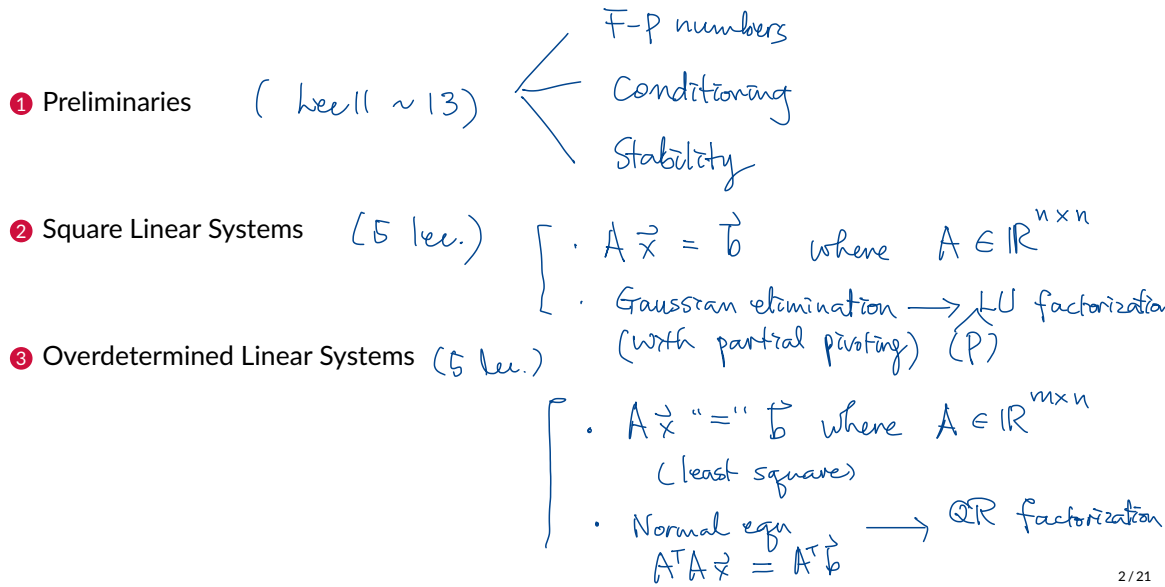 F-P numbers
1 Preliminaries ( Lec 11 ~ 13) Conditioning
Stability
2 Square Linear Systems (5 lec.) · A x⃗ = b⃗ where A ∈ ℝⁿˣⁿ
· Gaussian elimination → LU factorization
(with partial pivoting) (P)
3 Overdetermined Linear Systems (5 lec.)
· A x⃗ "=" b⃗ where A ∈ ℝᵐˣⁿ
(least square)
· Normal eqn → QR factorization
AᵀA x⃗ = Aᵀ b⃗
2 / 21